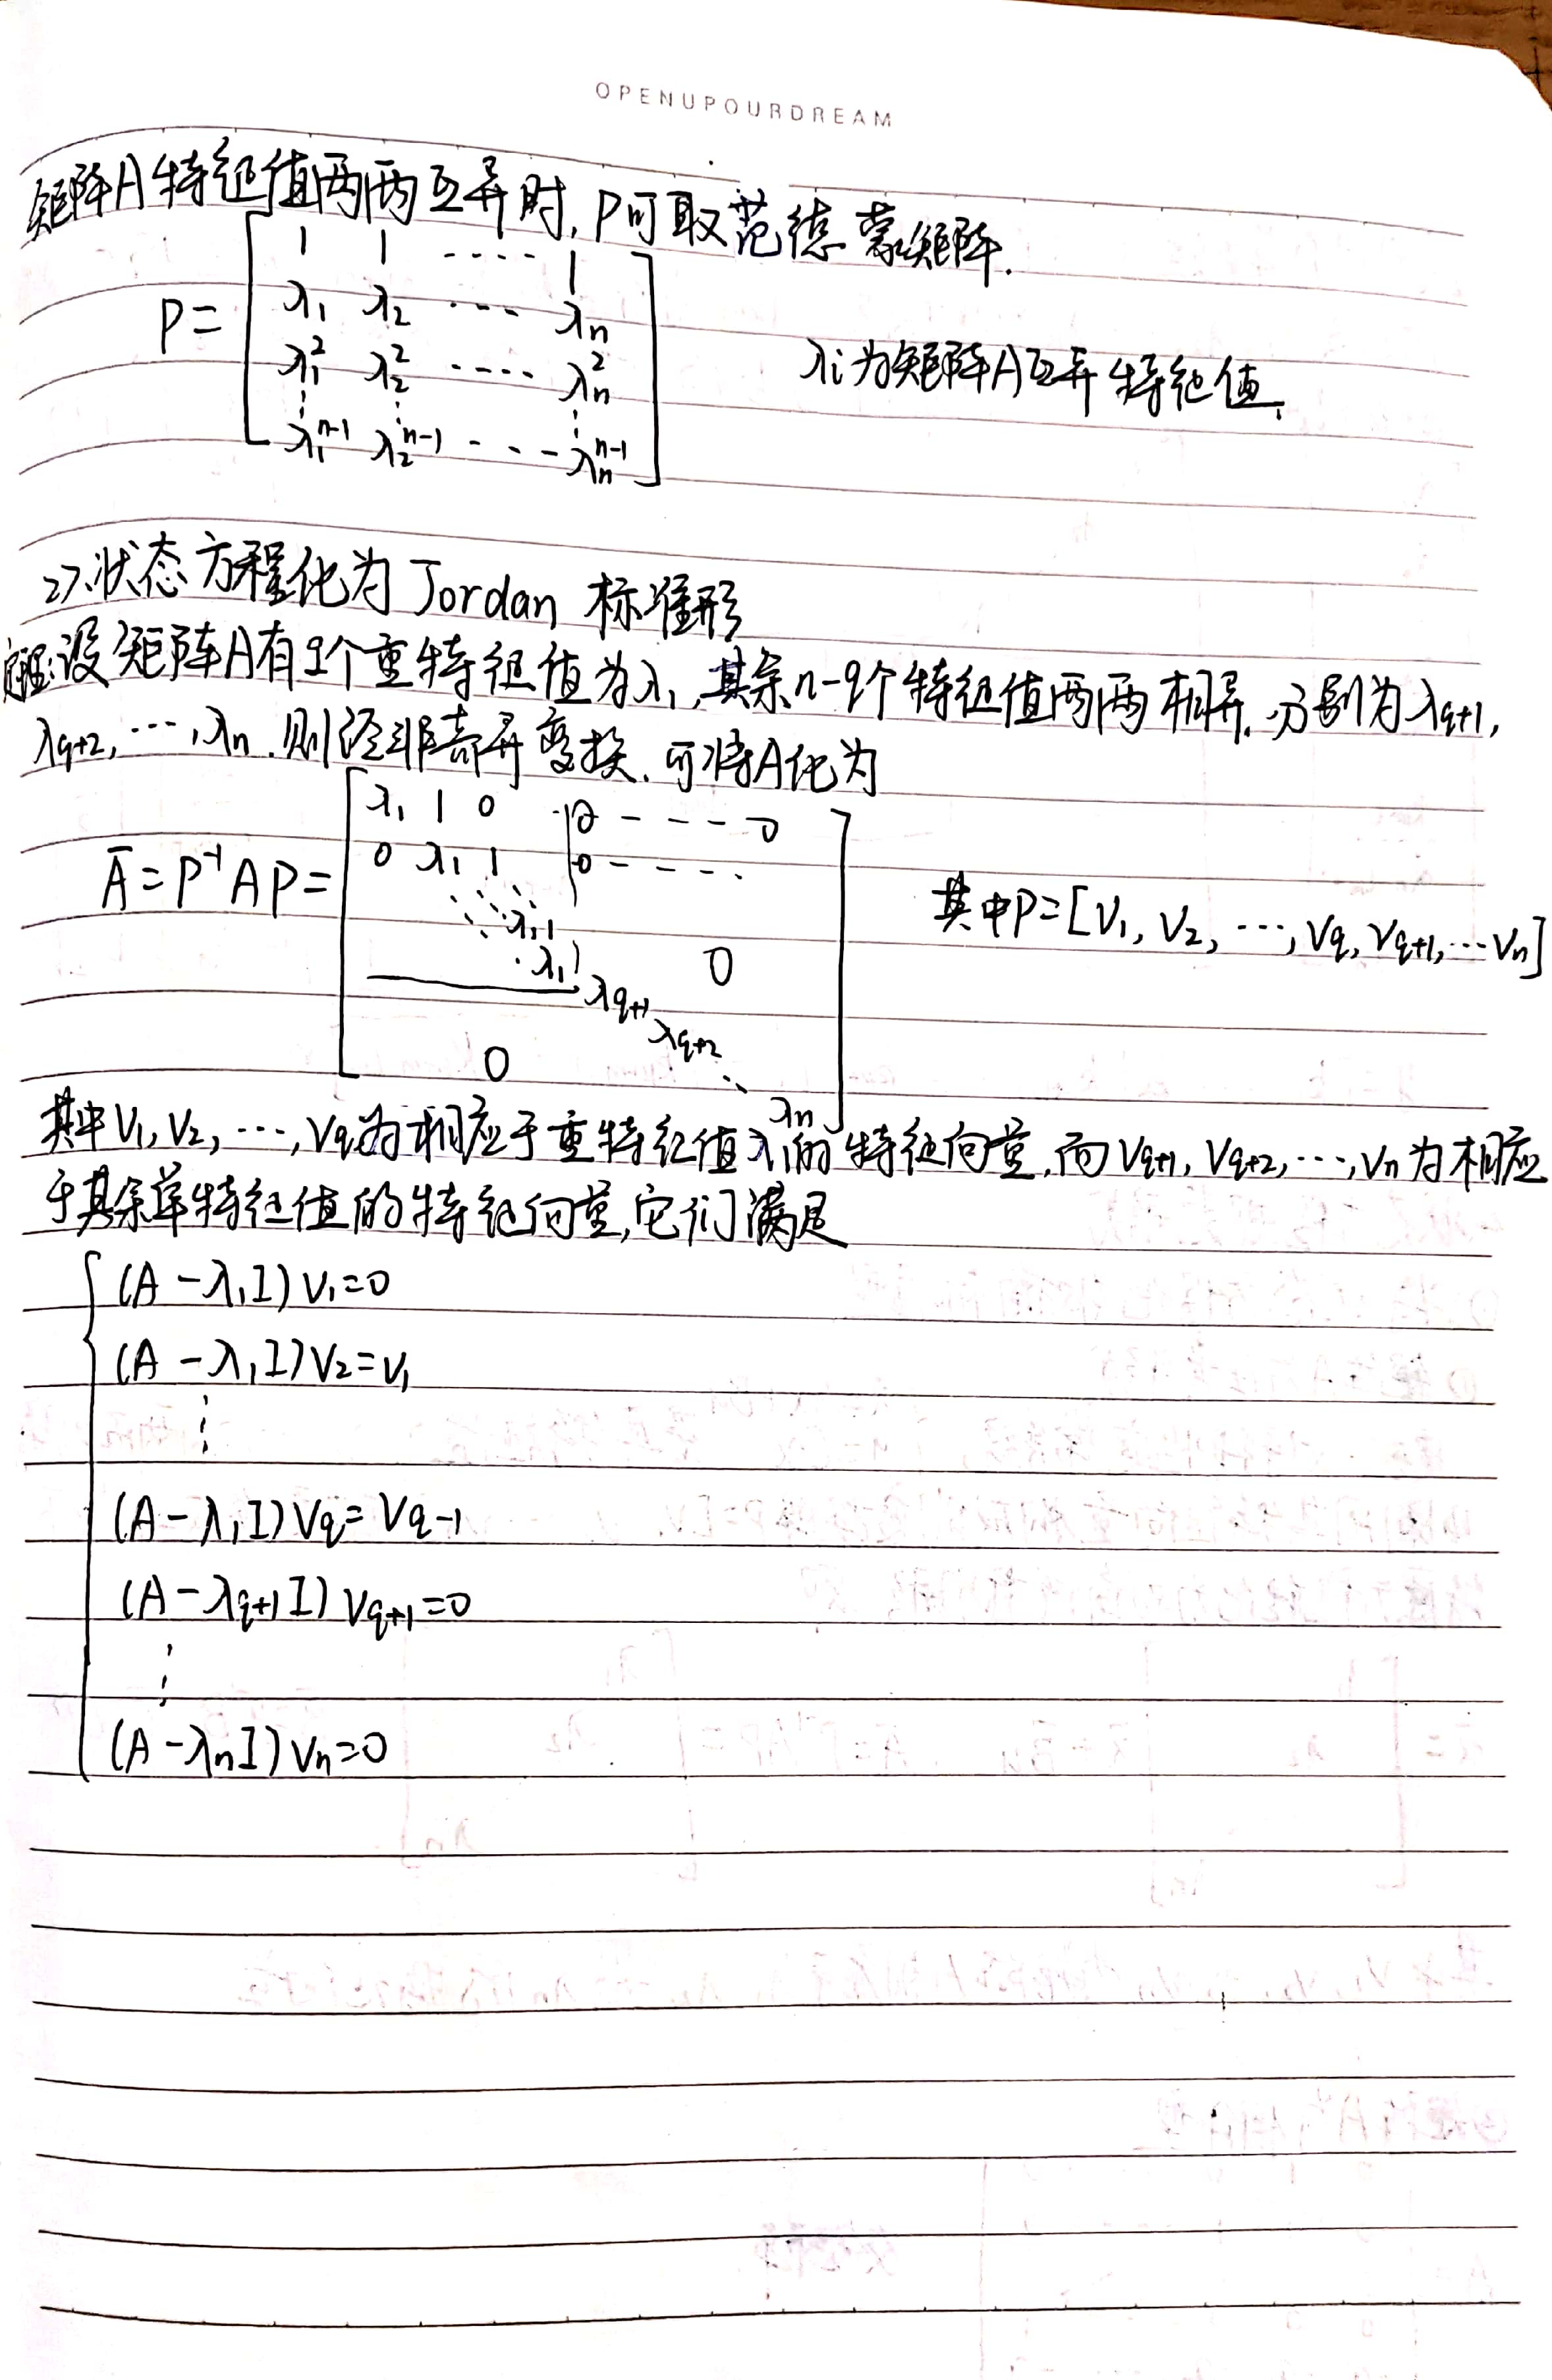 OPENUPOURDREAM
矩阵A特征值两两互异时,P可取范德蒙矩阵.
P= [ 1 1 ···· 1
λ₁ λ₂ ··· λn
λ₁² λ₂² ···· λn²
⋮ ⋮ ⋮
λ₁ⁿ⁻¹ λ₂ⁿ⁻¹ ---- λnⁿ⁻¹ ]
λi为矩阵A互异特征值.
2>.状态方程化为Jordan 标准形
设矩阵A有q个重特征值为λ₁,其余n-q个特征值两两相异.分别为λq+1,
λq+2, ···, λn.则经非奇异变换.可将A化为
Ā=P⁻¹AP= [ λ₁ 1 0 · | 0 - - - - 0
0 λ₁ 1 | 0 - - - ·
⋱ ⋱ λ₁ 1
λ₁ 0
λq+1
λq+2
0 ⋱
λn ]
其中P=[V₁, V₂, ···, Vq, Vq+1, ··· Vn]
其中V₁, V₂, ···, Vq为相应于重特征值λ₁的特征向量,而Vq+1, Vq+2, ···, Vn为相应
于其余单特征值的特征向量,它们满足
{ (A-λ₁I)V₁=0
(A-λ₁I)V₂=V₁
⋮
(A-λ₁I)Vq=Vq-1
(A-λq+1I)Vq+1=0
⋮
(A-λnI)Vn=0